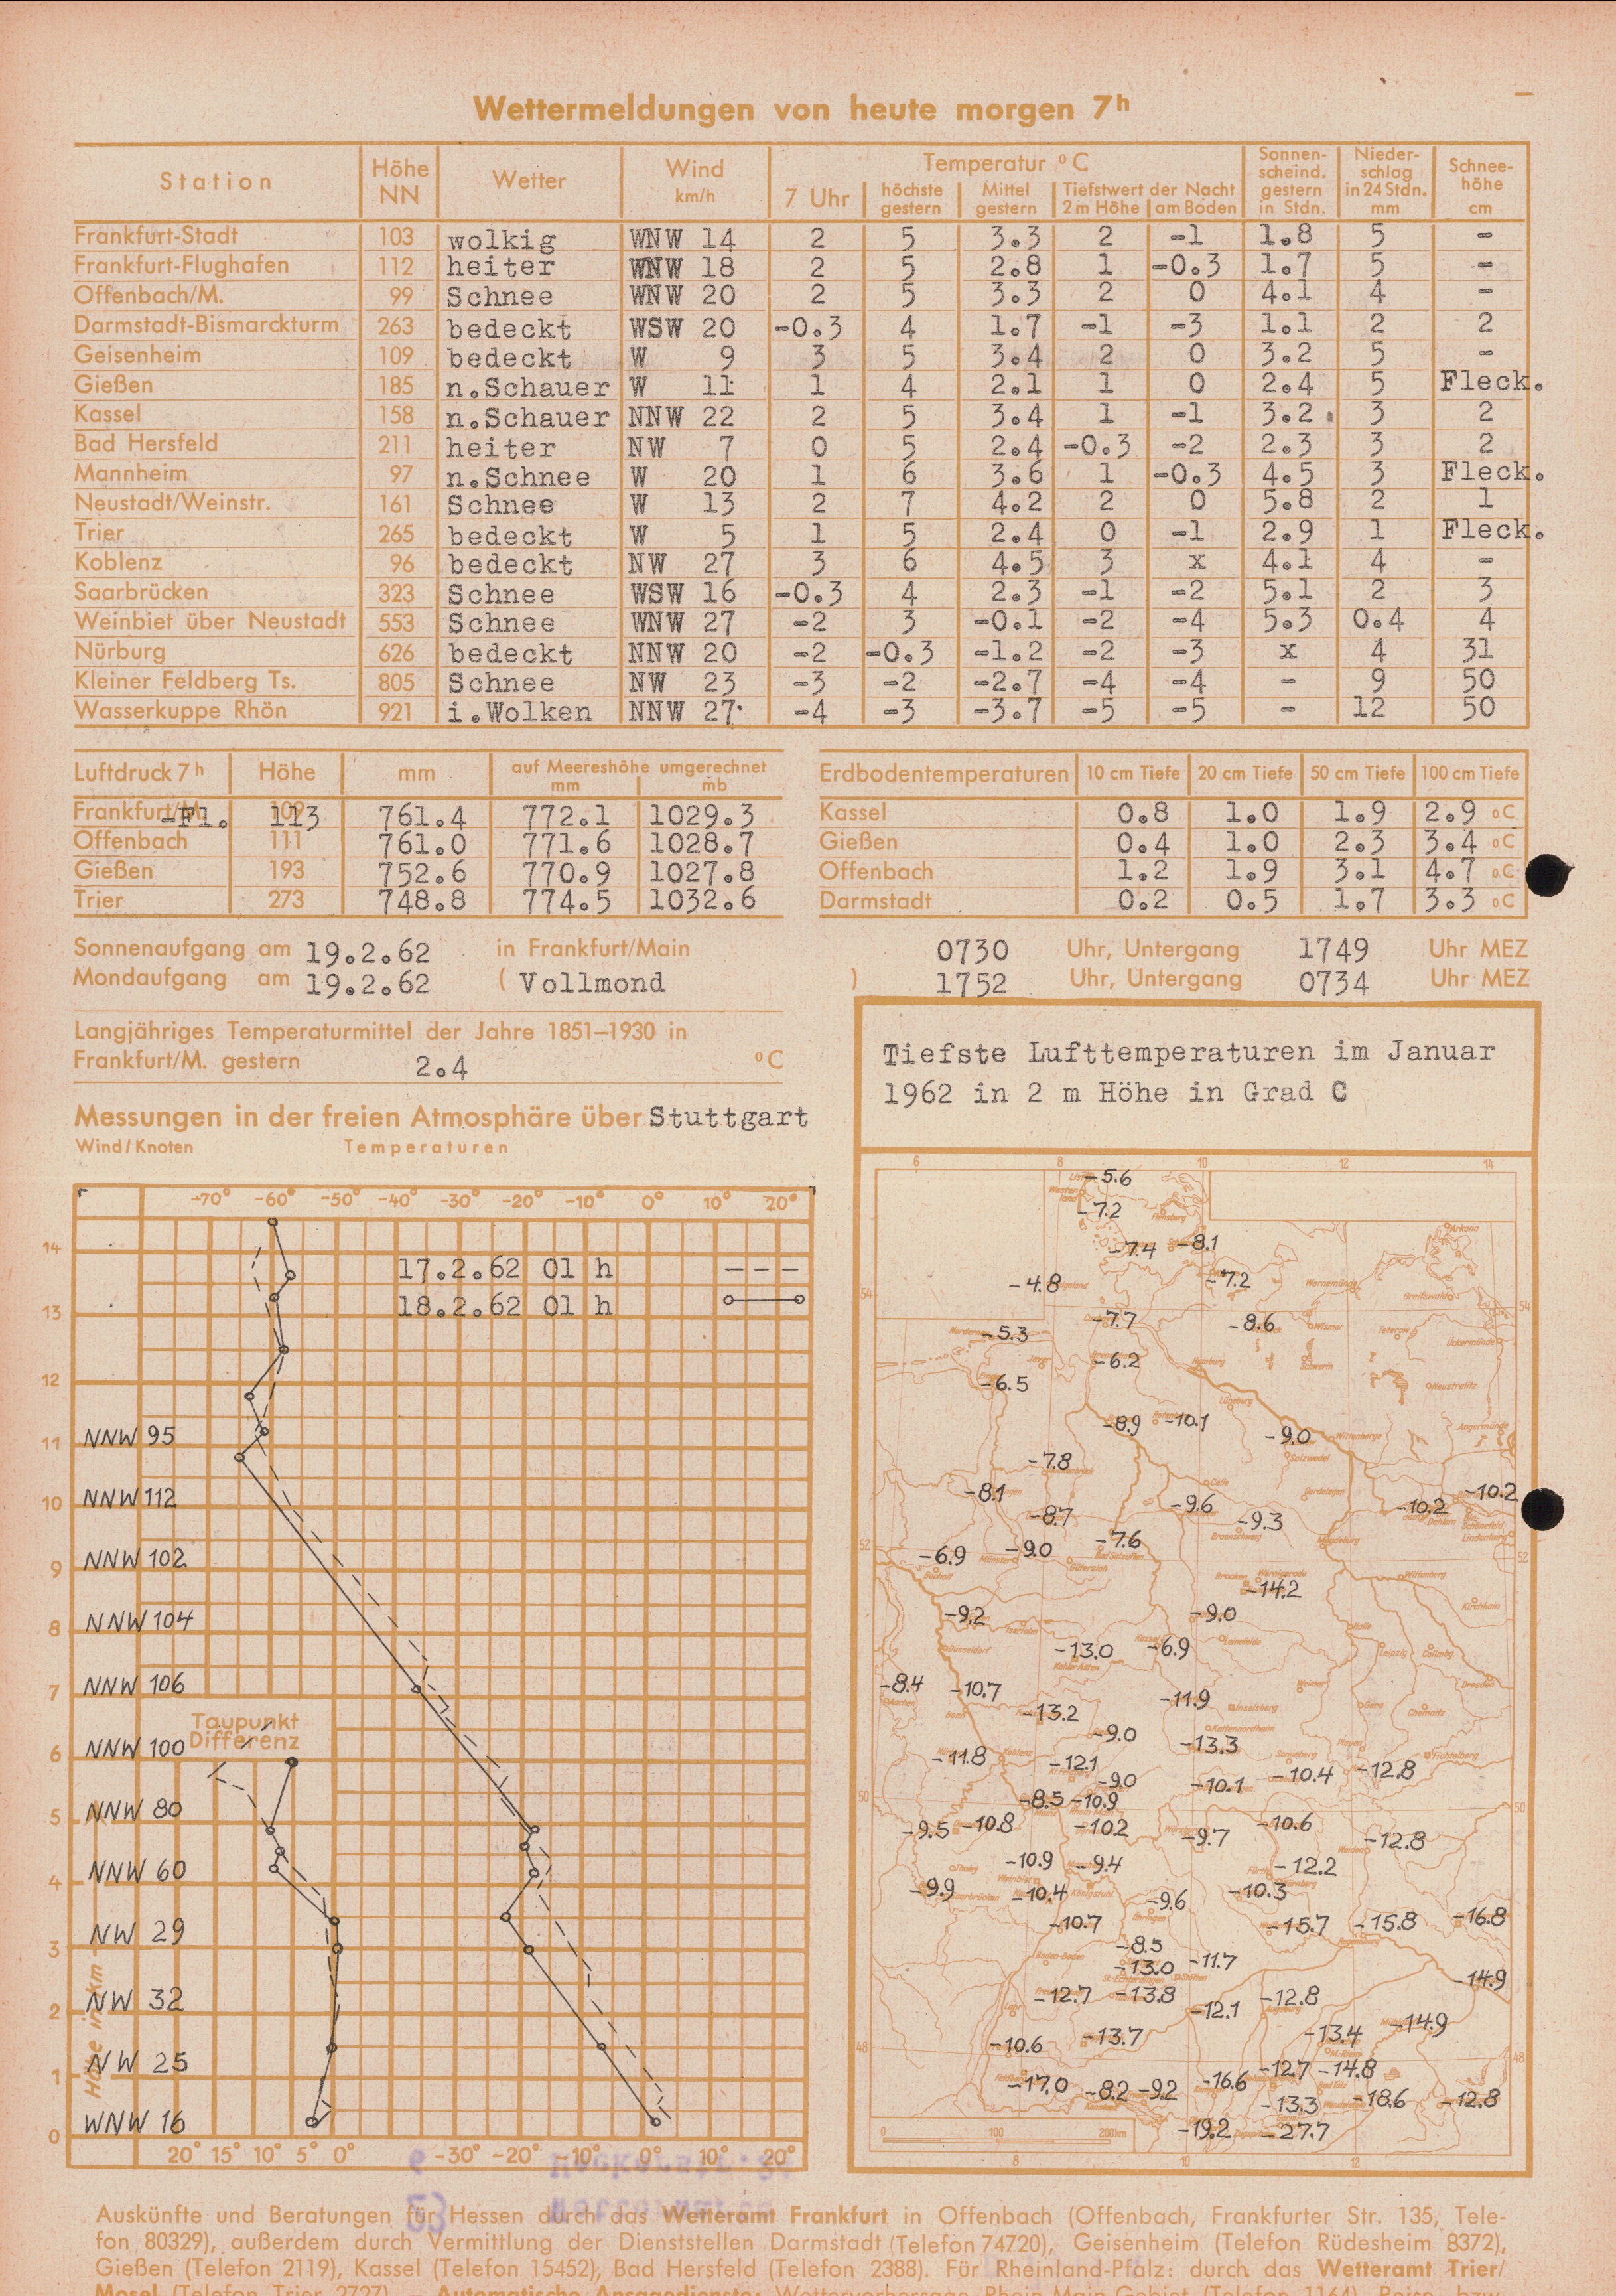 Wettermeldungen von heute morgen 7h
Station Höhe NN Wetter Wind km/h Temperatur °C Sonnenscheind. gestern in Stdn. Niederschlag in 24 Stdn. mm Schneehöhe cm
7 Uhr höchste gestern Mittel gestern Tiefstwert der Nacht 2 m Höhe am Boden
Frankfurt-Stadt 103 wolkig WNW 14 2 5 3.3 2 -1 1.8 5 -
Frankfurt-Flughafen 112 heiter WNW 18 2 5 2.8 1 -0.3 1.7 5 -
Offenbach/M. 99 Schnee WNW 20 2 5 3.3 2 0 4.1 4 -
Darmstadt-Bismarckturm 263 bedeckt WSW 20 -0.3 4 1.7 -1 -3 1.1 2 2
Geisenheim 109 bedeckt W 9 3 5 3.4 2 0 3.2 5 -
Gießen 185 n.Schauer W 11 1 4 2.1 1 0 2.4 5 Fleck.
Kassel 158 n.Schauer NNW 22 2 5 3.4 1 -1 3.2 3 2
Bad Hersfeld 211 heiter NW 7 0 5 2.4 -0.3 -2 2.3 3 2
Mannheim 97 n.Schnee W 20 1 6 3.6 1 -0.3 4.5 3 Fleck.
Neustadt/Weinstr. 161 Schnee W 13 2 7 4.2 2 0 5.8 2 1
Trier 265 bedeckt W 5 1 5 2.4 0 -1 2.9 1 Fleck.
Koblenz 96 bedeckt NW 27 3 6 4.5 3 x 4.1 4 -
Saarbrücken 323 Schnee WSW 16 -0.3 4 2.3 -1 -2 5.1 2 3
Weinbiet über Neustadt 553 Schnee WNW 27 -2 3 -0.1 -2 -4 5.3 0.4 4
Nürburg 626 bedeckt NNW 20 -2 -0.3 -1.2 -2 -3 x 4 31
Kleiner Feldberg Ts. 805 Schnee NW 23 -3 -2 -2.7 -4 -4 - 9 50
Wasserkuppe Rhön 921 i.Wolken NNW 27 -4 -3 -3.7 -5 -5 - 12 50
Luftdruck 7h Höhe mm auf Meereshöhe umgerechnet mm mb
Frankfurt/M. -Fl. 113 761.4 772.1 1029.3
Offenbach 111 761.0 771.6 1028.7
Gießen 193 752.6 770.9 1027.8
Trier 273 748.8 774.5 1032.6
Erdbodentemperaturen 10 cm Tiefe 20 cm Tiefe 50 cm Tiefe 100 cm Tiefe
Kassel 0.8 1.0 1.9 2.9 °C
Gießen 0.4 1.0 2.3 3.4 °C
Offenbach 1.2 1.9 3.1 4.7 °C
Darmstadt 0.2 0.5 1.7 3.3 °C
Sonnenaufgang am 19.2.62 in Frankfurt/Main 0730 Uhr, Untergang 1749 Uhr MEZ
Mondaufgang am 19.2.62 ( Vollmond ) 1752 Uhr, Untergang 0734 Uhr MEZ
Langjähriges Temperaturmittel der Jahre 1851–1930 in
Frankfurt/M. gestern 2.4 °C
Messungen in der freien Atmosphäre über Stuttgart
Wind/Knoten Temperaturen
-70° -60° -50° -40° -30° -20° -10° 0° 10° 20°
17.2.62 01 h
18.2.62 01 h
14
13
12
11 NNW 95
10 NNW 112
9 NNW 102
8 NNW 104
7 NNW 106
Taupunkt
Differenz
6 NNW 100
5 NNW 80
4 NNW 60
3 NW 29
2 NW 32
1 NW 25
0 WNW 16
Höhe in km
20° 15° 10° 5° 0° -30° -20° -10° 0° 10° 20°
Tiefste Lufttemperaturen im Januar
1962 in 2 m Höhe in Grad C
6 8 10 12 14
-5.6
-7.2
-7.4 -8.1
-4.8 -7.2
54 54
-7.7 -8.6
-5.3
-6.2
-6.5
-8.9 -10.1
-9.0
-7.8
-8.1 -9.6 -10.2 -10.2
-8.7 -9.3
-7.6
52 -6.9 -9.0 52
-14.2
-9.2 -9.0
-13.0 -6.9
-8.4 -10.7 -11.9
-13.2
-9.0 -13.3
-11.8 -12.1 -10.4 -12.8
-9.0 -10.1
50 -8.5 -10.9 50
-9.5 -10.8 -10.2 -9.7 -10.6
-12.8
-10.9 -9.4 -12.2
-9.9 -10.4 -9.6 -10.3
-10.7 -15.7 -15.8 -16.8
-8.5
-13.0 -11.7
-14.9
-12.7 -13.8 -12.1 -12.8
-14.9
-10.6 -13.7 -13.4
48 48
-12.7 -14.8
-17.0 -8.2 -9.2 -16.6
-13.3 -18.6 -12.8
-19.2 -27.7
0 100 200km
8 10 12
Auskünfte und Beratungen für Hessen durch das Wetteramt Frankfurt in Offenbach (Offenbach, Frankfurter Str. 135, Tele-
fon 80329), außerdem durch Vermittlung der Dienststellen Darmstadt (Telefon 74720), Geisenheim (Telefon Rüdesheim 8372),
Gießen (Telefon 2119), Kassel (Telefon 15452), Bad Hersfeld (Telefon 2388). Für Rheinland-Pfalz: durch das Wetteramt Trier/
Mosel (Telefon Trier 2727). – Automatische Ansagedienste: Wettervorhersage Rhein-Main-Gebiet (Telefon 1164), Reise- bzw.